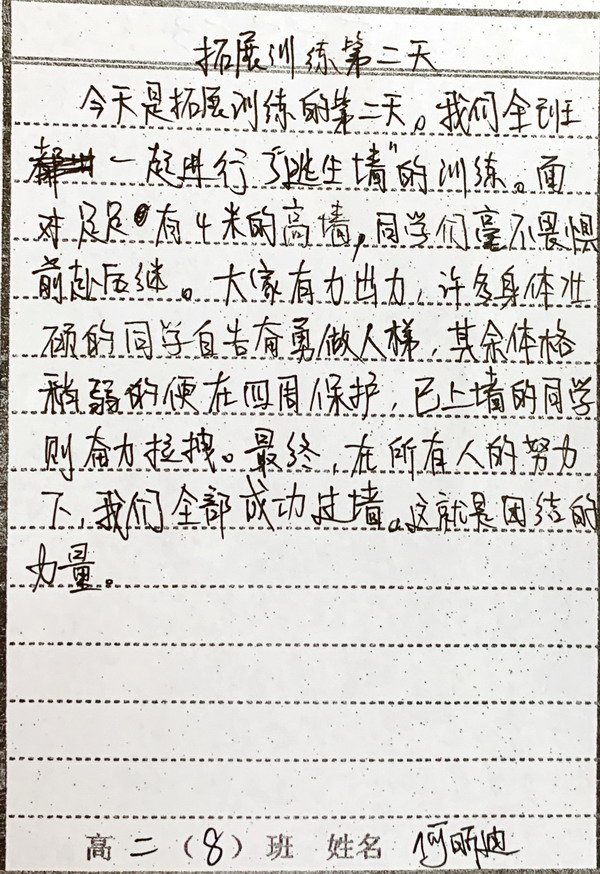 拓展训练第二天
今天是拓展训练的第二天。我们全班
一起进行“逃生墙”的训练。面
对足足有4米的高墙,同学们毫不畏惧
前赴后继。大家有力出力,许多身体壮
硕的同学自告奋勇做人梯,其余体格
稍弱的便在四周保护,已上墙的同学
则奋力拉拽。最终,在所有人的努力
下,我们全部成功过墙。这就是团结的
力量。
高二(8)班 姓名 何